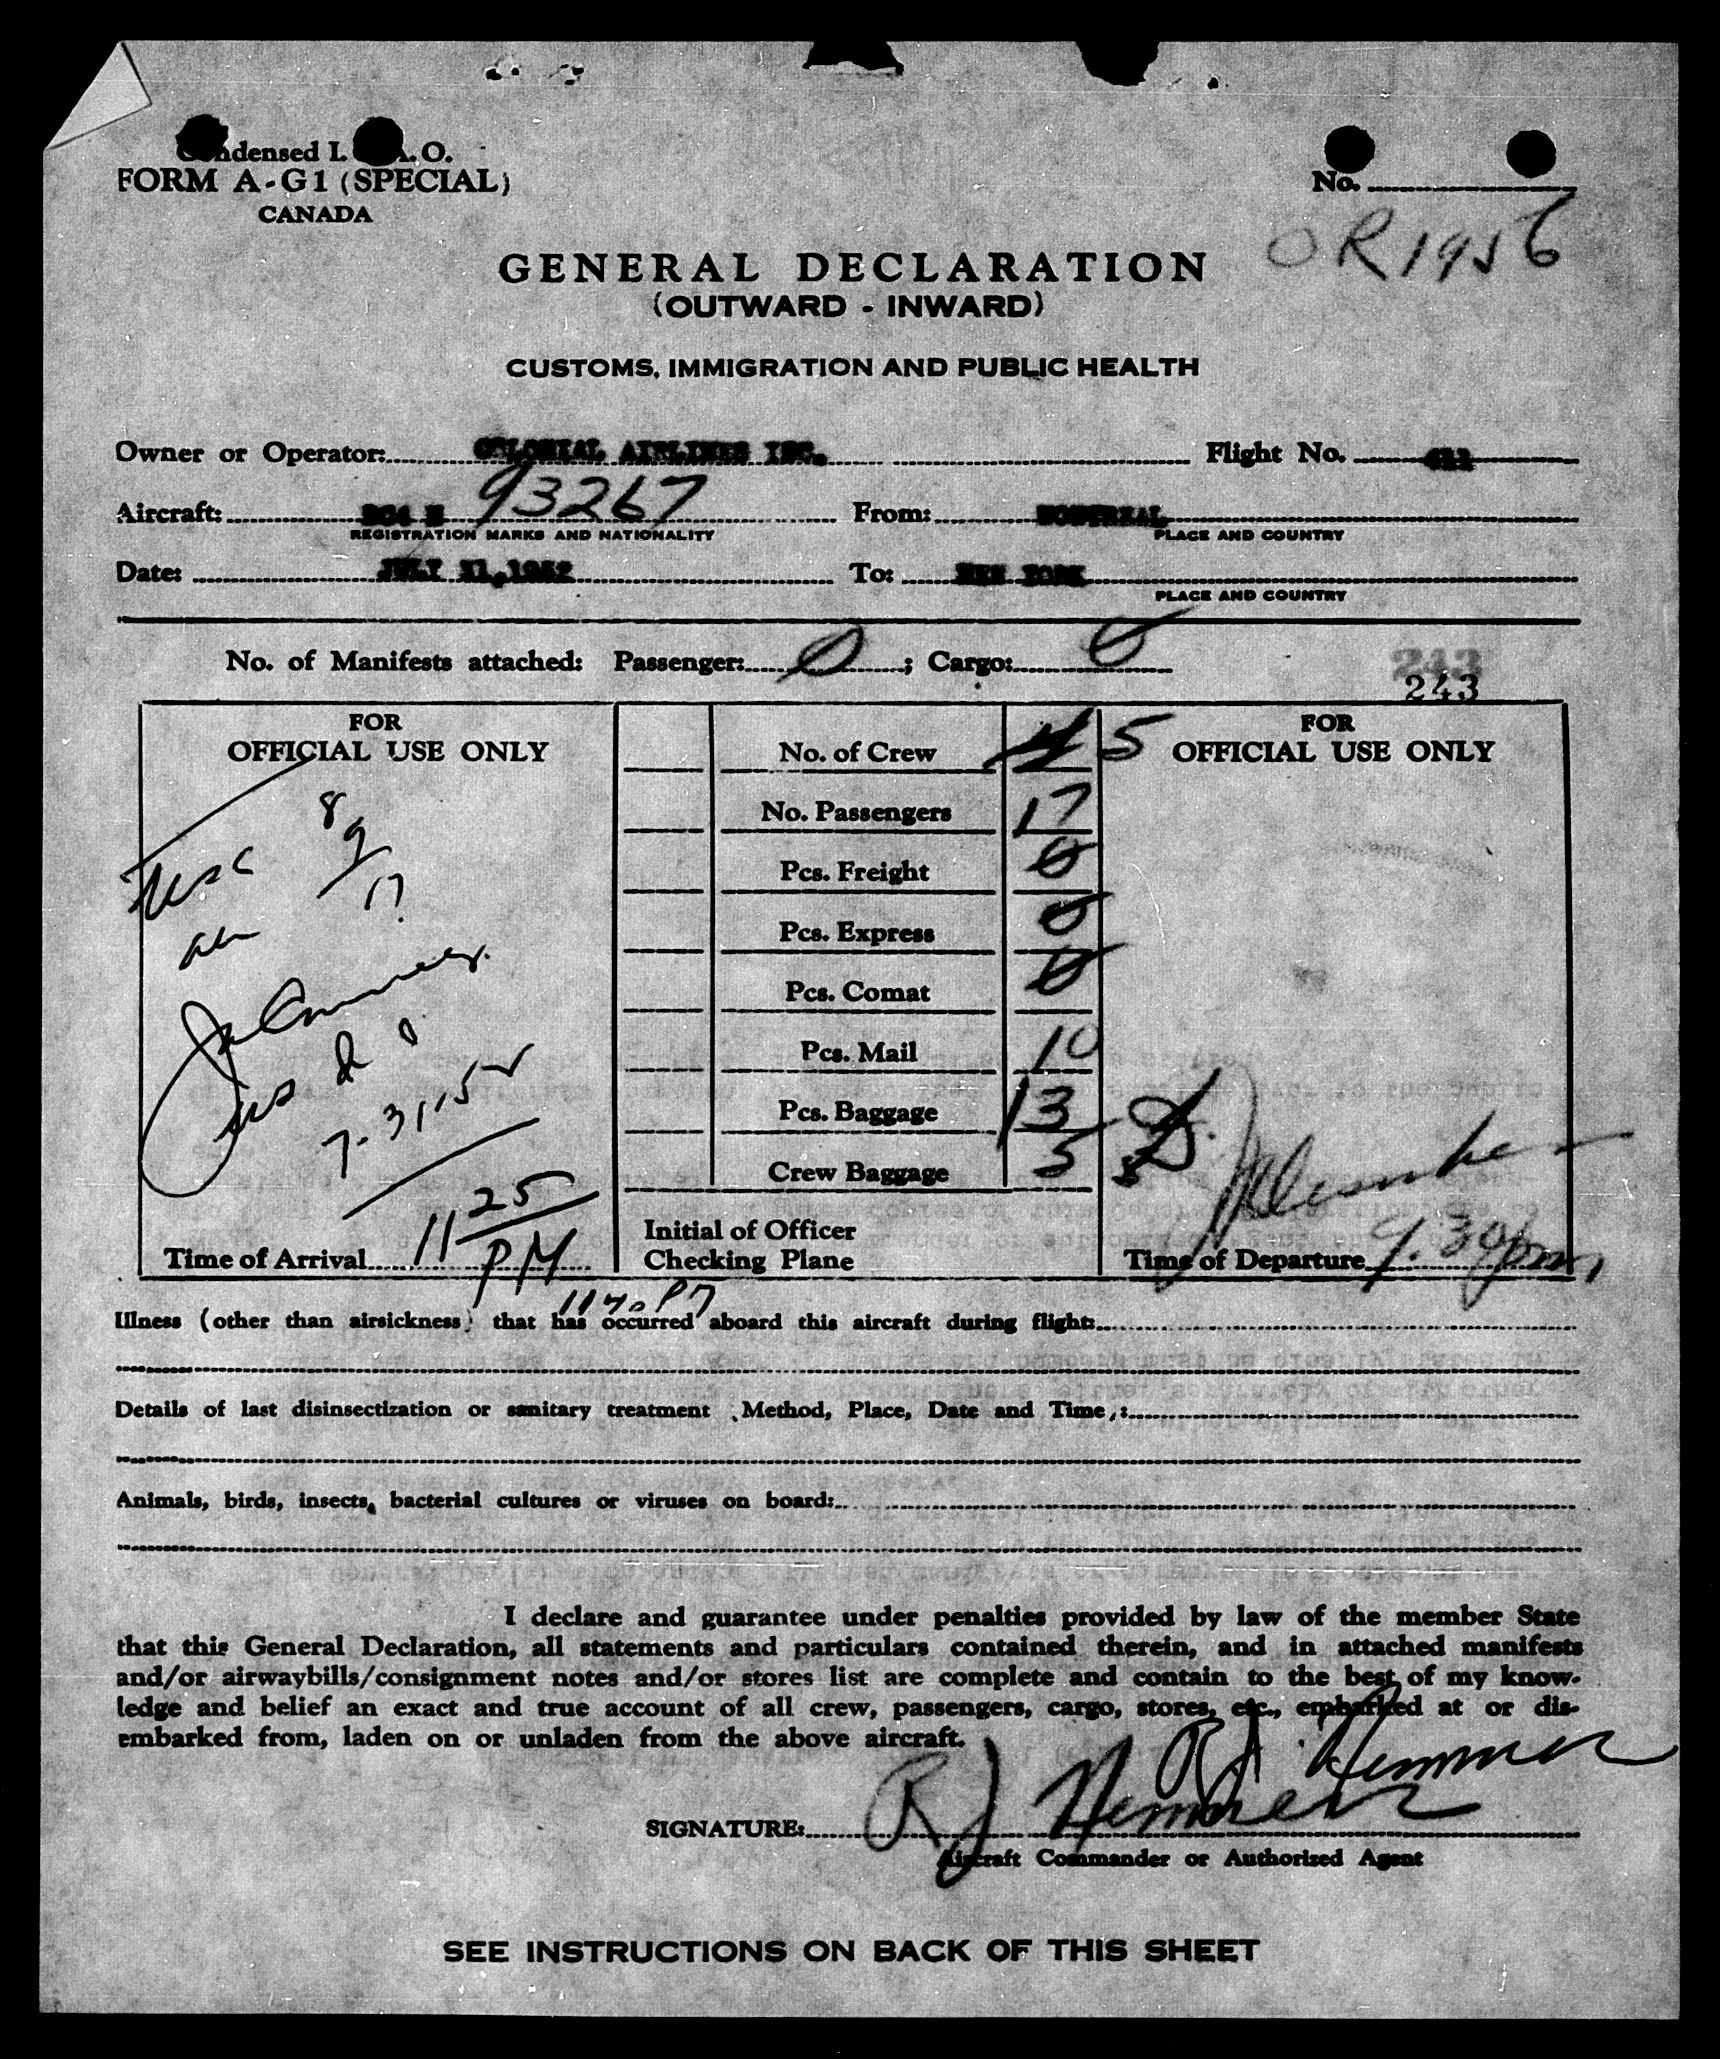 Condensed I. A. O.
FORM A-G1 (SPECIAL)
CANADA
No.
OR1956
GENERAL DECLARATION
(OUTWARD - INWARD)
CUSTOMS, IMMIGRATION AND PUBLIC HEALTH
Owner or Operator: COLONIAL AIRLINES INC. Flight No.
Aircraft: DC4 N 93267 From: MONTREAL
REGISTRATION MARKS AND NATIONALITY PLACE AND COUNTRY
Date: JULY 31,1952 To: NEW YORK
PLACE AND COUNTRY
No. of Manifests attached: Passenger: 0 ; Cargo: 0
243
243
FOR
OFFICIAL USE ONLY
8
9
17
7-31-52
Time of Arrival 11 25 PM
No. of Crew 4 5
No. Passengers 17
Pcs. Freight 0
Pcs. Express 0
Pcs. Comat 0
Pcs. Mail 10
Pcs. Baggage 13
Crew Baggage 5
Initial of Officer
Checking Plane
FOR
OFFICIAL USE ONLY
Time of Departure 9.30 pm
Illness (other than airsickness) that has occurred aboard this aircraft during flight:
Details of last disinsectization or sanitary treatment (Method, Place, Date and Time):
Animals, birds, insects, bacterial cultures or viruses on board:
I declare and guarantee under penalties provided by law of the member State
that this General Declaration, all statements and particulars contained therein, and in attached manifests
and/or airwaybills/consignment notes and/or stores list are complete and contain to the best of my know-
ledge and belief an exact and true account of all crew, passengers, cargo, stores, etc., embarked at or dis-
embarked from, laden on or unladen from the above aircraft.
SIGNATURE: R J
Aircraft Commander or Authorized Agent
SEE INSTRUCTIONS ON BACK OF THIS SHEET